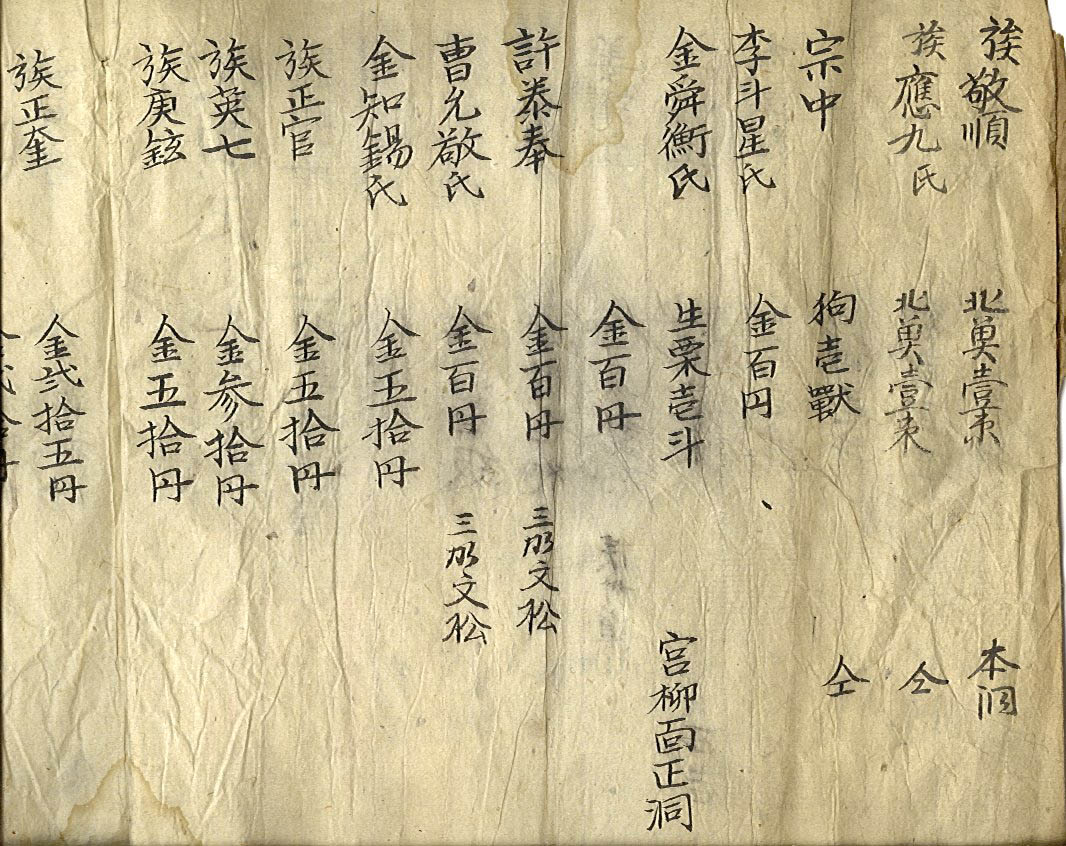 族敬順 北奠壹束 本洞
族應九氏 北奠壹束 仝
宗中 狗壱獸 仝
李斗星氏 金百円
金舜衡氏 生栗壱斗 宮柳面正洞
金百円
許泰奉 金百円 三加文松
曺允敬氏 金百円 三加文松
金知錫氏 金五拾円
族正官 金五拾円
族英七 金参拾円
族庚鉉 金五拾円
族正奎 金弐拾五円